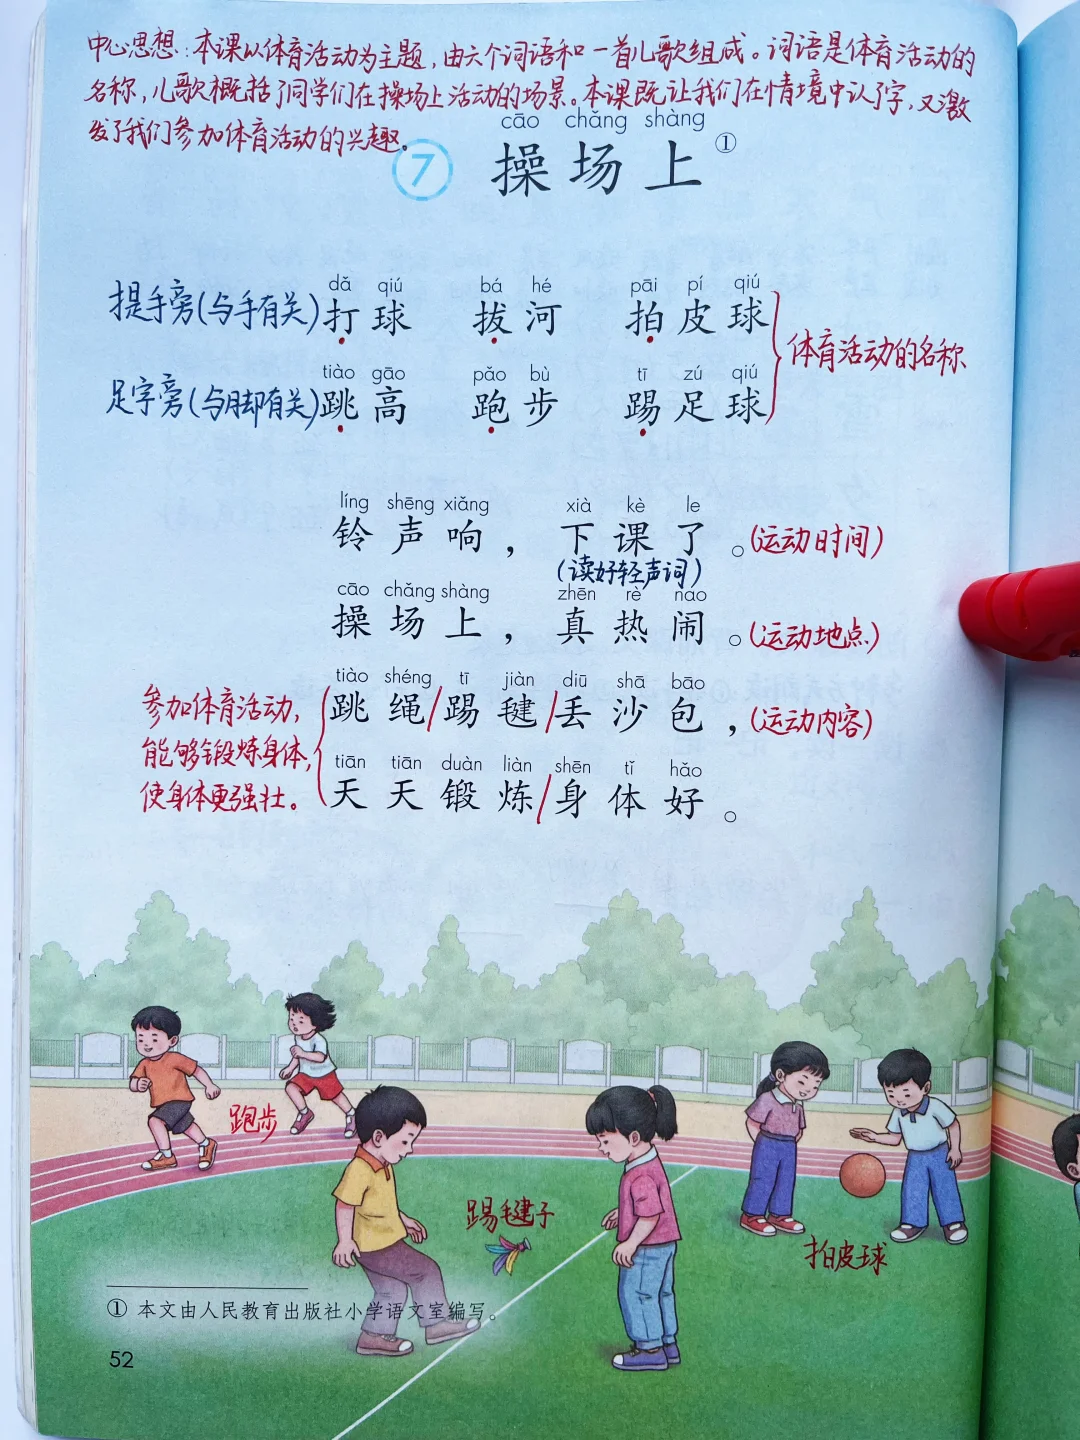 中心思想：本课以体育活动为主题，由六个词语和一首儿歌组成。词语是体育活动的
名称，儿歌概括了同学们在操场上活动的场景。本课既让我们在情境中认了字，又激
发了我们参加体育活动的兴趣。
cāo chǎng shàng
7 操场上 ①
dǎ qiú bá hé pāi pí qiú
提手旁(与手有关) 打球 拔河 拍皮球
体育活动的名称
tiào gāo pǎo bù tī zú qiú
足字旁(与脚有关) 跳高 跑步 踢足球
líng shēng xiǎng xià kè le
铃声响，下课了。(运动时间)
(读好轻声词)
cāo chǎng shàng zhēn rè nao
操场上，真热闹。(运动地点)
tiào shéng tī jiàn diū shā bāo
跳绳/踢毽/丢沙包，(运动内容)
参加体育活动，
能够锻炼身体，
使身体更强壮。
tiān tiān duàn liàn shēn tǐ hǎo
天天锻炼/身体好。
跑步
踢毽子
拍皮球
① 本文由人民教育出版社小学语文室编写。
52